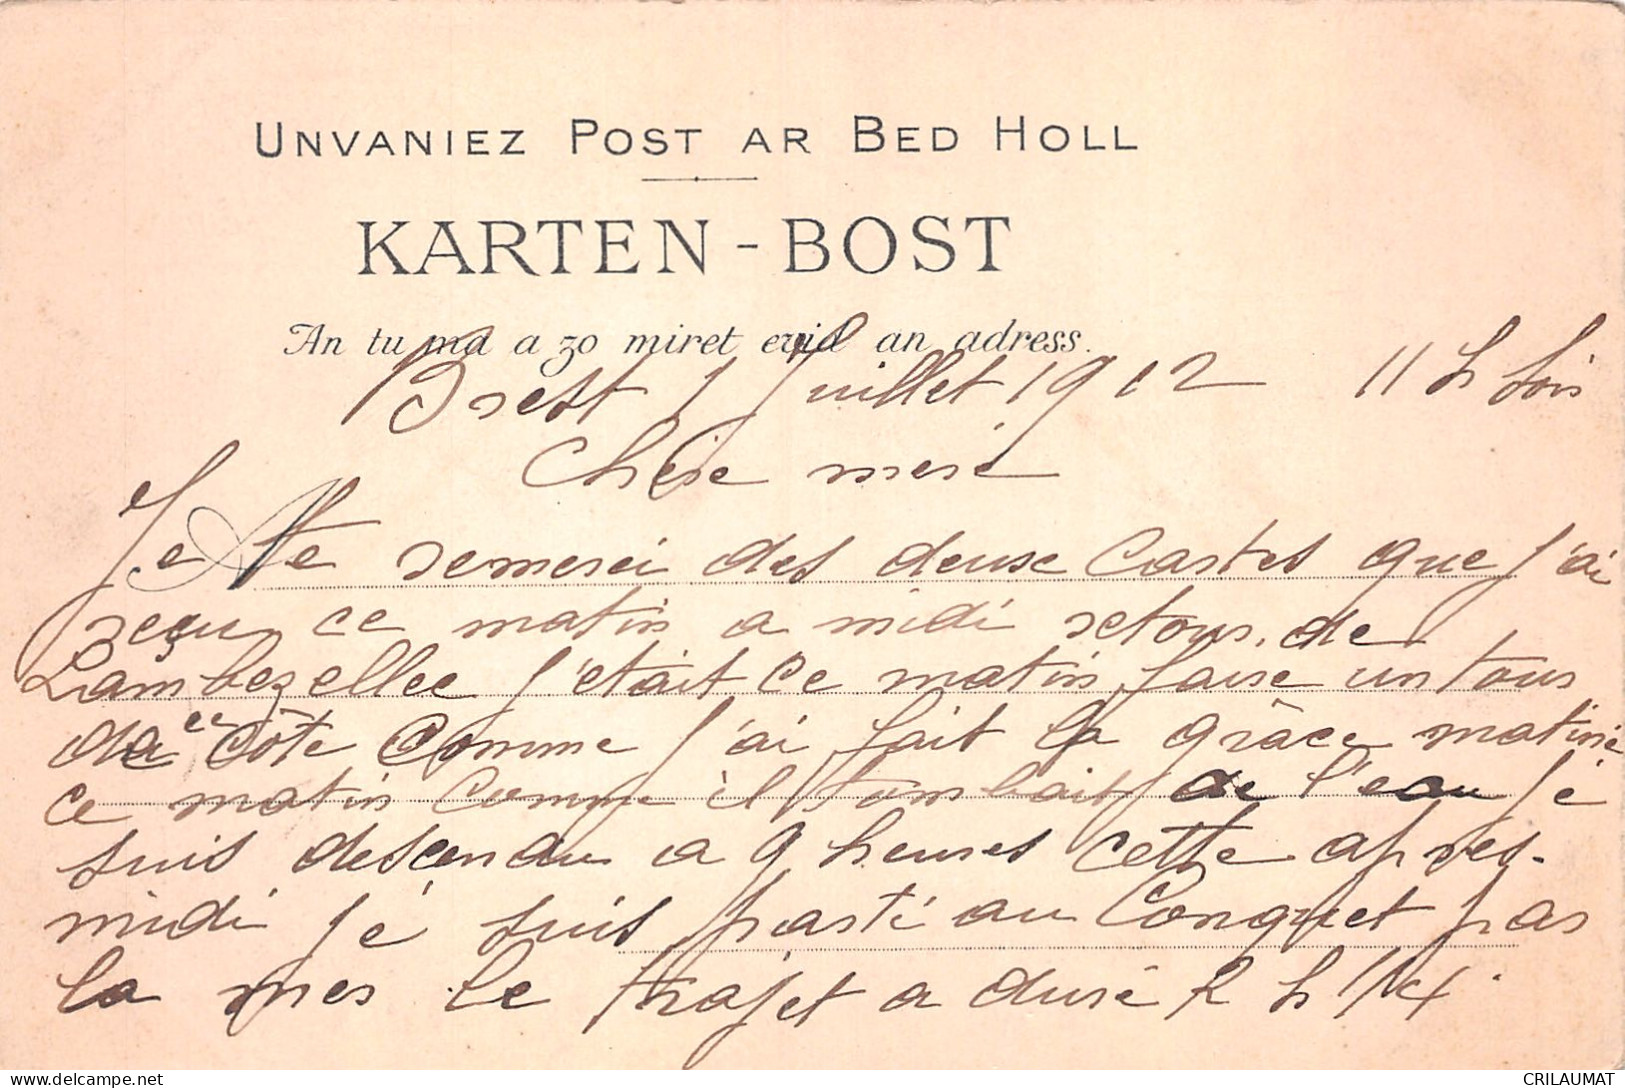 UNVANIEZ POST AR BED HOLL
KARTEN-BOST
An tu ma a zo miret evid an adress.
Brest 1 Juillet 1912 11 h Soir
Chère mere
Je te remerei des deuse Cartes que j'ai
reçu ce matin a midi retour de
Lambezellec j'était ce matin faire un tour
de ce côte comme j'ai fait la grâce matiné
ce matin comme il tombait de l'eau je
suis descendu a 9 heures cette apres-
midi je suis parti au Conquet par
la mer le trajet a duré 2 h 1/4.
CRILAUMAT